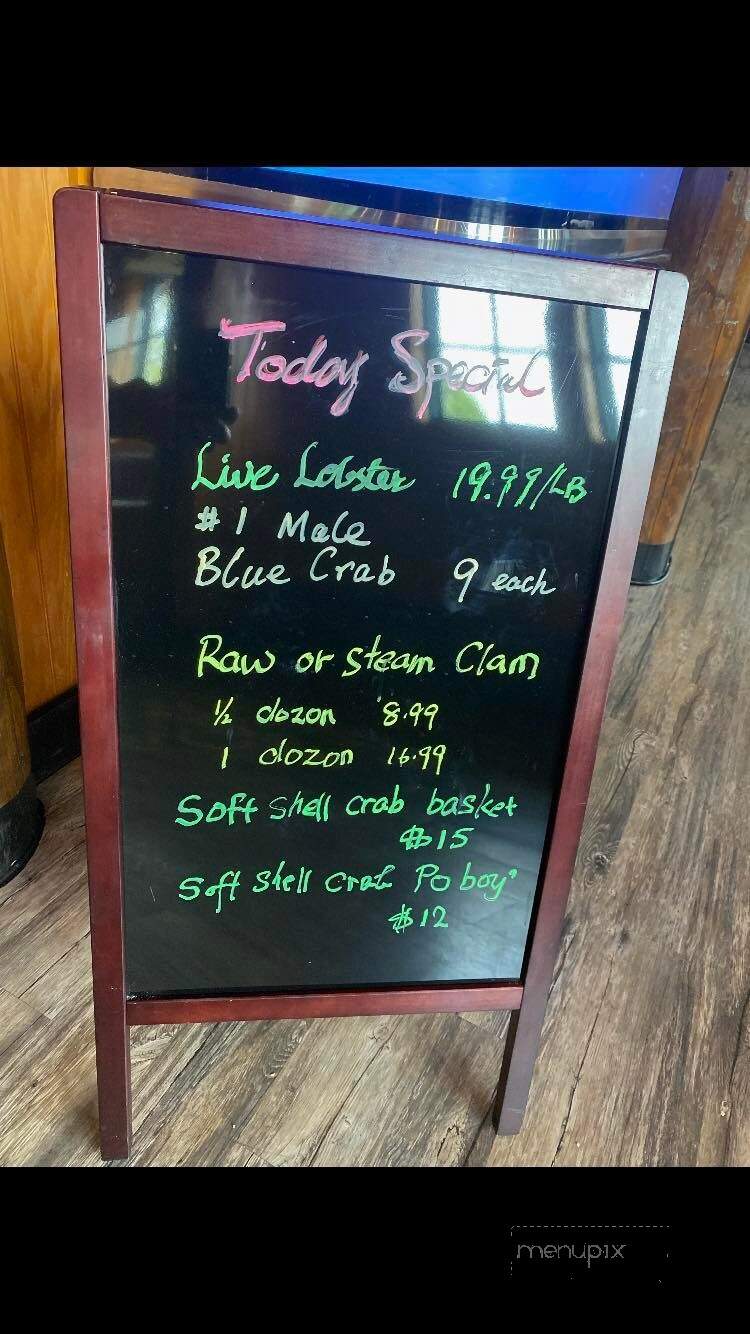 Today Special
Live Lobster 19.99/LB
#1 Male
Blue Crab 9 each
Raw or steam Clam
½ dozon 8.99
1 dozon 16.99
Soft shell crab basket
$15
Soft shell crab Po boy'
$12
menupix